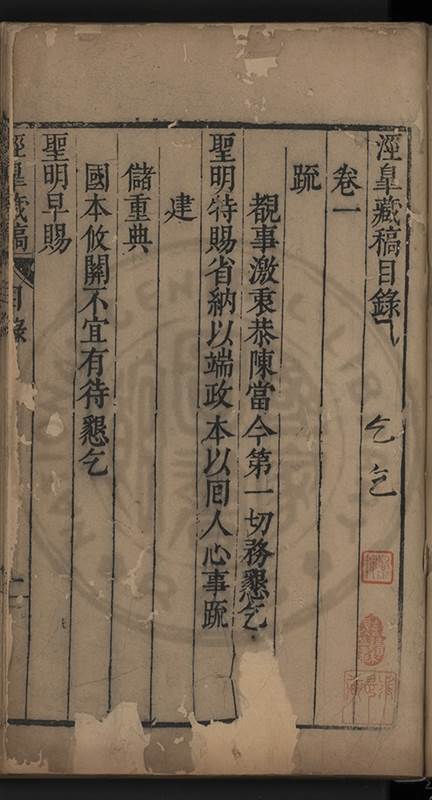 涇皐藏稿目錄
乞乞
卷一
疏
覩事激衷恭陳當今第一切務懇乞
聖明特賜省納以端政本以囘人心事疏
建
儲重典
國本攸關不宜有待懇乞
聖明早賜
涇皐藏稿 目錄